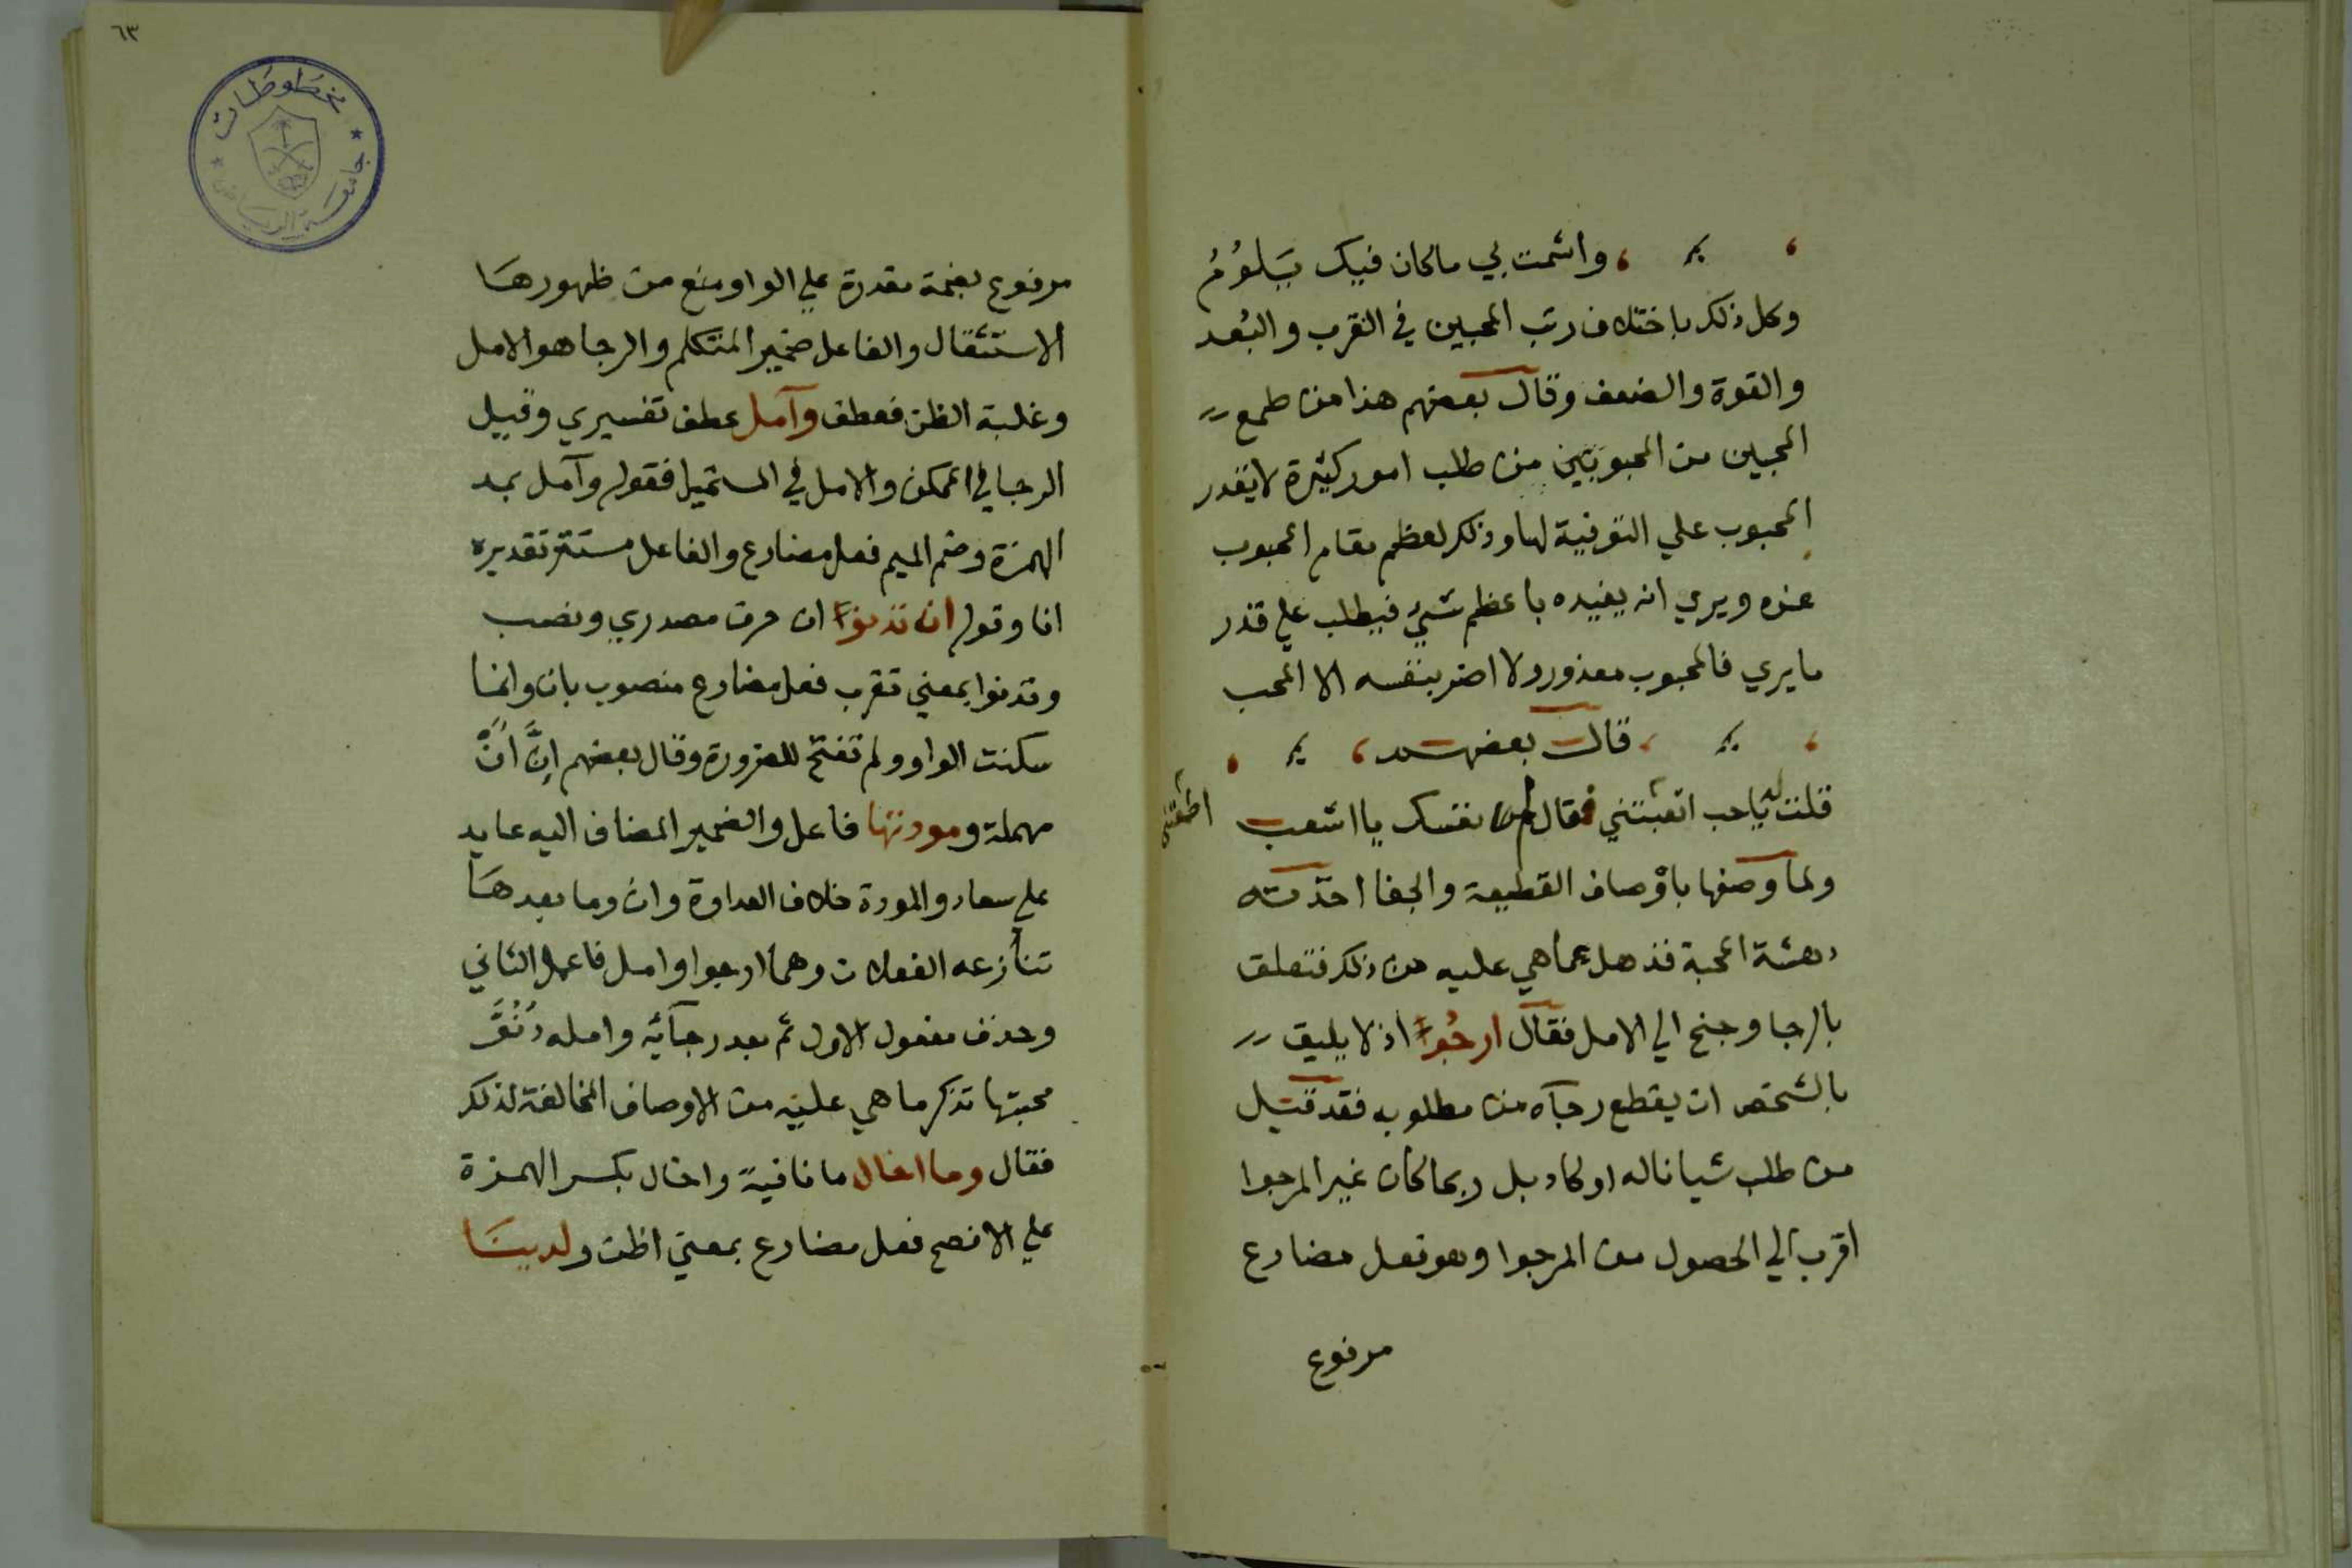 واشمت بي ماكان فيك يَلُومُ
وكل ذلك باختلاف رتب المحبين في القرب والبُعد
والقوة والضعف وقال بعضهم هذا من طمع
المحبين من المحبوبين من طلب امور كثيرة لا يقدر
المحبوب علي التوفية لها وذلك لعظم مقام المحبوب
عنده ويري انه يفيده باعظم شيئ فيطلب علي قدر
مايري فالمحبوب معذور ولا اضر بنفسه الا المحب
قال بعضهم
قلت له ياحب اتعبتني فقال نفسك يا اشعب
ولما وصفها باوصاف القطيعة والجفا اخذته
دهشة المحبة فذهل عماهي عليه من ذلك فتعلق
بالرجا وجنح الي الامل فقال ارجُوا اذ لا يليق
بالشخص ان يقطع رجآه من مطلوبه فقد قيل
من طلب شيا ناله او كاد بل ربما كان غير المرجوا
اقرب الي الحصول من المرجوا وهو فعل مضارع
مرفوع
٦٣
مخطوطات
جامعة الرياض
مرفوع بضمة مقدرة علي الواو منع من ظهورها
الاستثقال والفاعل ضمير المتكلم والرجا هو الامل
وغلبة الظن فعطف وآمل عطف تفسيري وقيل
الرجا في الممكن والامل في المستحيل فقوله وآمل بمد
الهمزة وضم الميم فعل مضارع والفاعل مستتر تقديره
انا وقوله ان تدنوا ان حرف مصدري ونصب
وتدنوا بمعني تقرب فعل مضارع منصوب بان وانما
سكنت الواو ولم تفتح للضرورة وقال بعضهم اِنَّ اَنْ
مهملة ومودتها فاعل والضمير المضاف اليه عايد
علي سعاد والمودة خلاف العداوة وان وما بعدها
تنازعه الفعلان وهما ارجوا وامل فاعمل الثاني
وحذف مفعول الاول ثم بعد رجآئه وامله دُنُوَّ
محبتها تذكر ما هي عليه من الاوصاف المخالفة لذلك
فقال وما اخال ما نافية واخال بكسر الهمزة
علي الافصح فعل مضارع بمعني اظن ولدينا